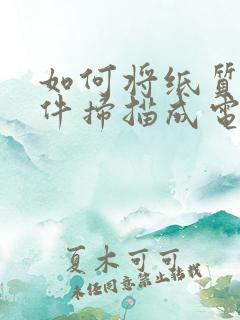 如何将纸质
件扫描成电
夏木可可
未经同意禁止转载